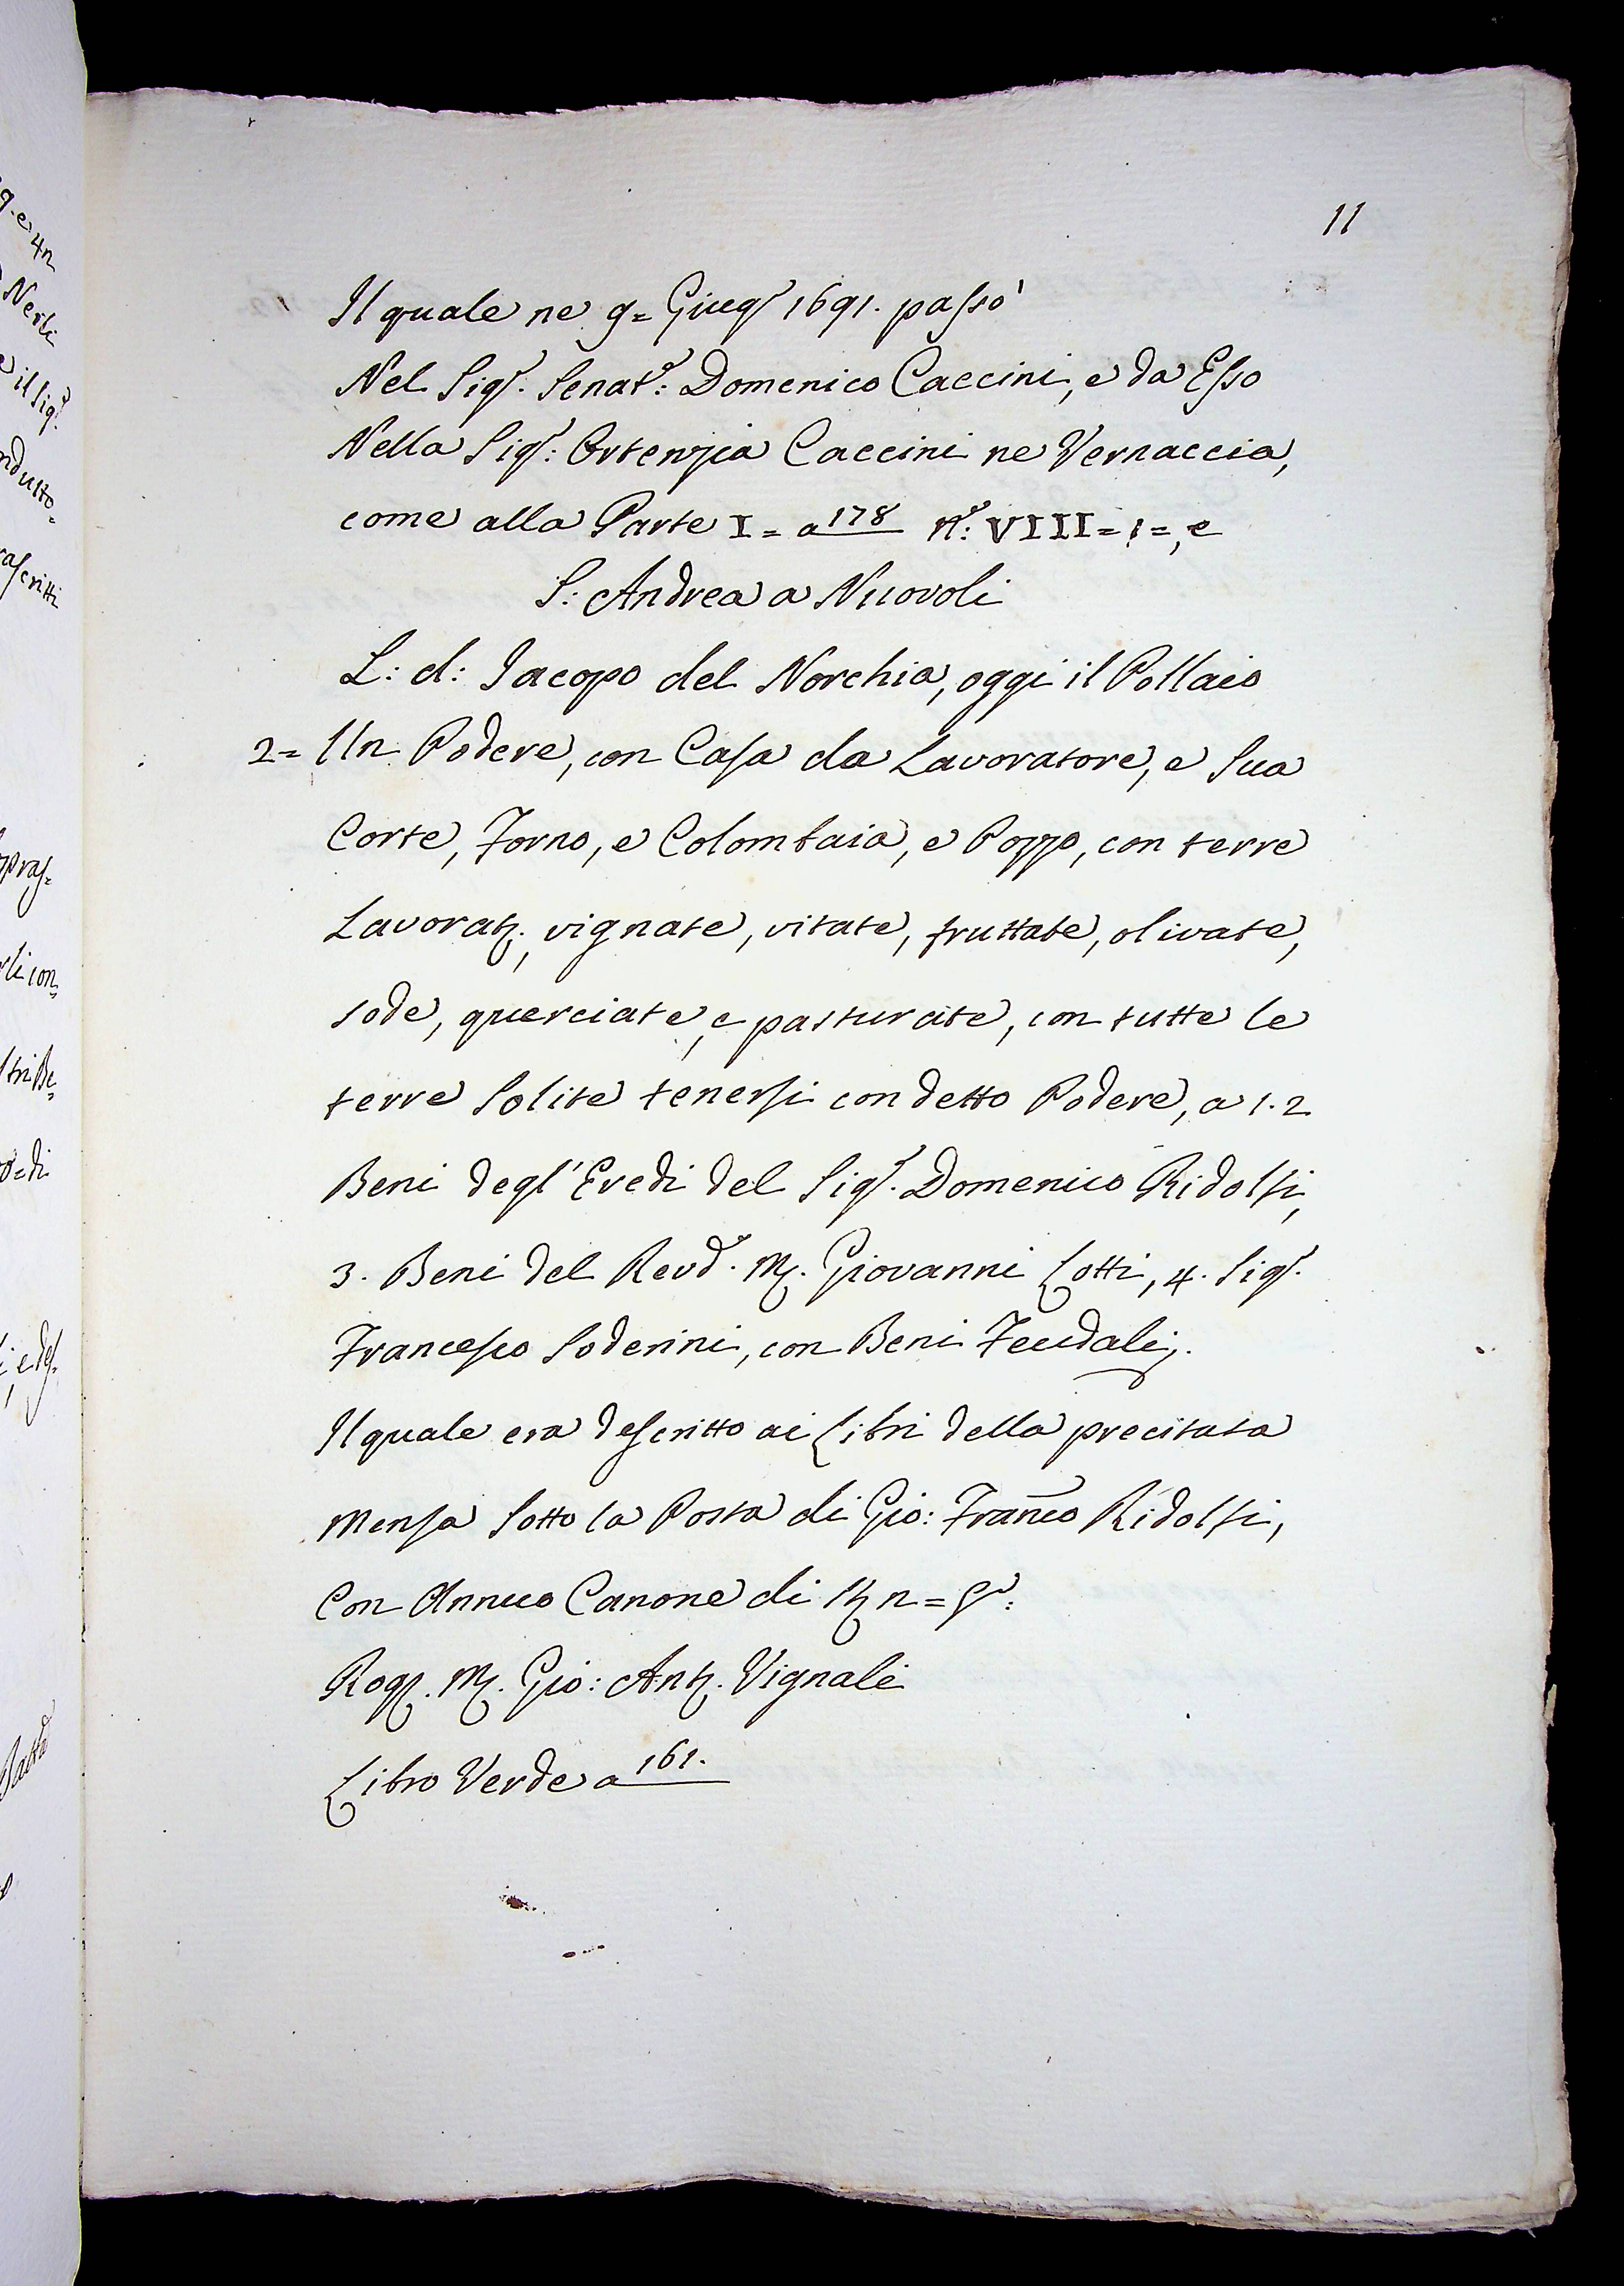 11
Il quale ne 9= Giug.º 1691. passò
Nel Sig.r Senat.r: Domenico Caccini, e da Esso
Nella Sig.: Ortenzia Caccini ne Vernaccia,
come alla Parte I= a 178 N.º: VIII=1=, e
S: Andrea a Nuovoli
L: d: Jacopo del Norchia, oggi il Pollaio
2= Un Podere, con Casa da Lavoratore, e Sua
Corte, Forno, e Colombaia, e Pozzo, con terre
Lavorat., vignate, vitate, fruttate, olivate,
sode, querciate, e pasturate, con tutte le
terre Solite tenersi con detto Podere, a 1.2
Beni degl'Eredi del Sig.r Domenico Ridolfi,
3. Beni del Revd.º M. Giovanni Lotti, 4. Sig.r
Francesco Soderini, con Beni Feudali;.
Il quale era descritto ai Libri della precitata
Mensa Sotto la Posta di Gio: Fran̄co Ridolfi,
Con Annuo Canone di
Rog. M. Gio: Ant. Vignali
Libro Verde a 161.
9. e 4n
Nerli
e il Sig.r
ndutto=
rascritti
pras=
rli con=
ltri Be=
o=di
i, e des=